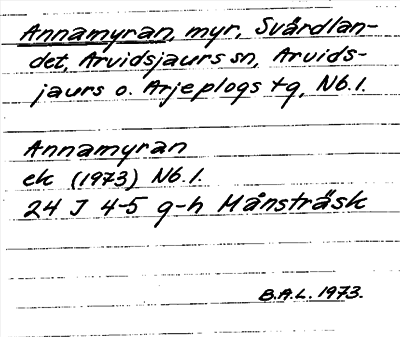 Annamyran, myr, Svårdlan-
det, Arvidsjaurs sn, Arvids-
jaurs o. Arjeplogs tg, Nb.l.
Annamyran
ek (1973) Nb.l.
24 J 4-5 g-h Månsträsk
B.A.L. 1973.